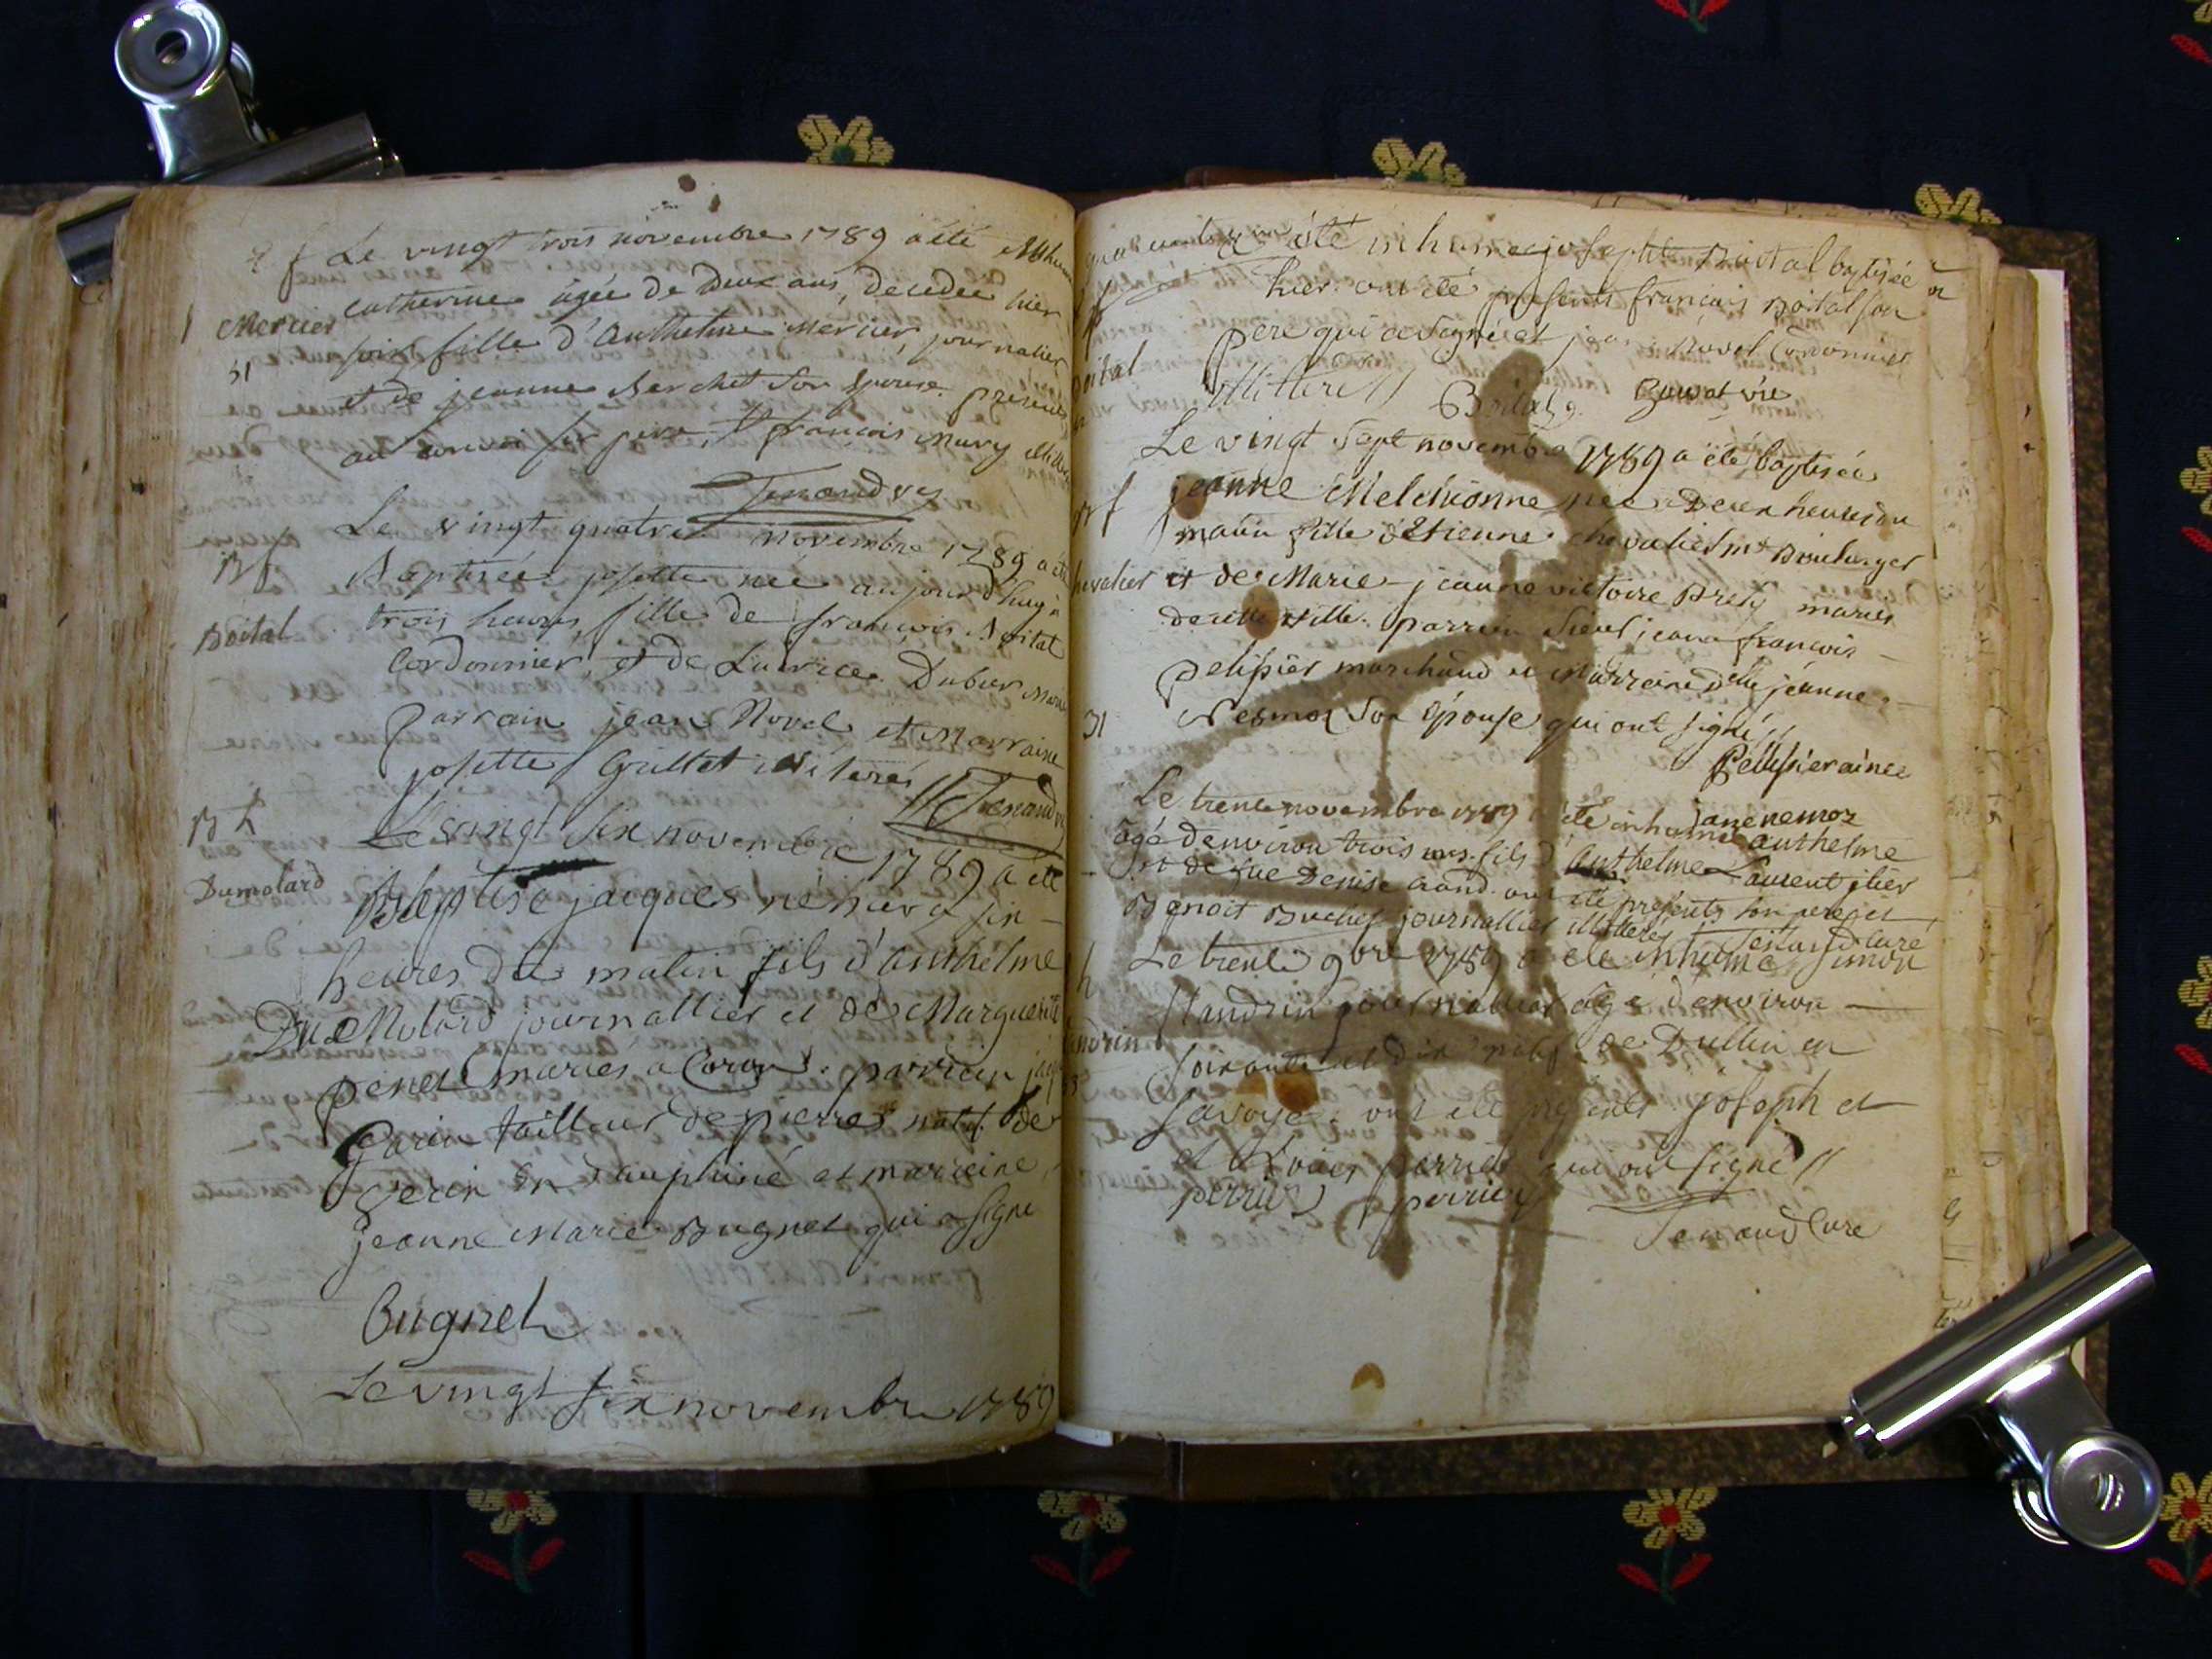 f Le vingt trois novembre 1789 a été
Catherine âgée de Deux ans, decedée hier
Mercier
soir fille d'anthelme Mercier, journalier
51
et de jeanne Berchet son épouse. présents
au convoi son pere, & francois Mury
Tenand
Le vingt quatre novembre 1789 a été
B f
Baptisée josette née aujourd'huy à
Boital
trois heures, fille de francois Boital
Cordonnier, et de Lucrece Dubur
parrain jean Novel et Marraine
josette Grillet illiterés // Tenand
B h
Le vingt six novembre 1789 a été
Dumolard
Baptisé jacques né hier a six
heures du matin fils d'anthelme
Du Molard journallier et de Marguerite
penet mariés a Coron. parrain
Garin tailleur de pierres natif de
en dauphiné et marraine
jeanne Marie Bugnet qui a signé
Bugnet
Le vingt six novembre 1789
a été inhumée josephte Boital baptisée
hier. ont été présents francois Boital son
pere qui a signé et jean Novel Cordonnier
illitéré // Boital
Le vingt sept novembre 1789 a été baptisée
f
jeanne Melchionne née a Deux heures du
matin fille d'Etienne chevalier me Boulanger
chevalier
et de Marie jeanne victoire mariés
de cette ville. parrain Sieur jean francois
pelissier marchand et Marraine delle jeanne
51
Nesmoz son épouse qui ont signé //
Pellissier ainée
jane nemoz
Le trente novembre 1789 a été inhumé anthelme
âgé d'environ trois ans. fils d'anthelme Laurent
et de fue Denise ont été présents son pere et
Benoit Buchet journallier illiterés // Tenand Curé
Le trente 9bre 1789 a été inhumé Simon
h
flandrin journallier âgé d'environ
soixante et dix natif de Dullin en
Savoye. ont été présents joseph et
et perrier qui ont signé //
perrier perrier
Tenand Curé